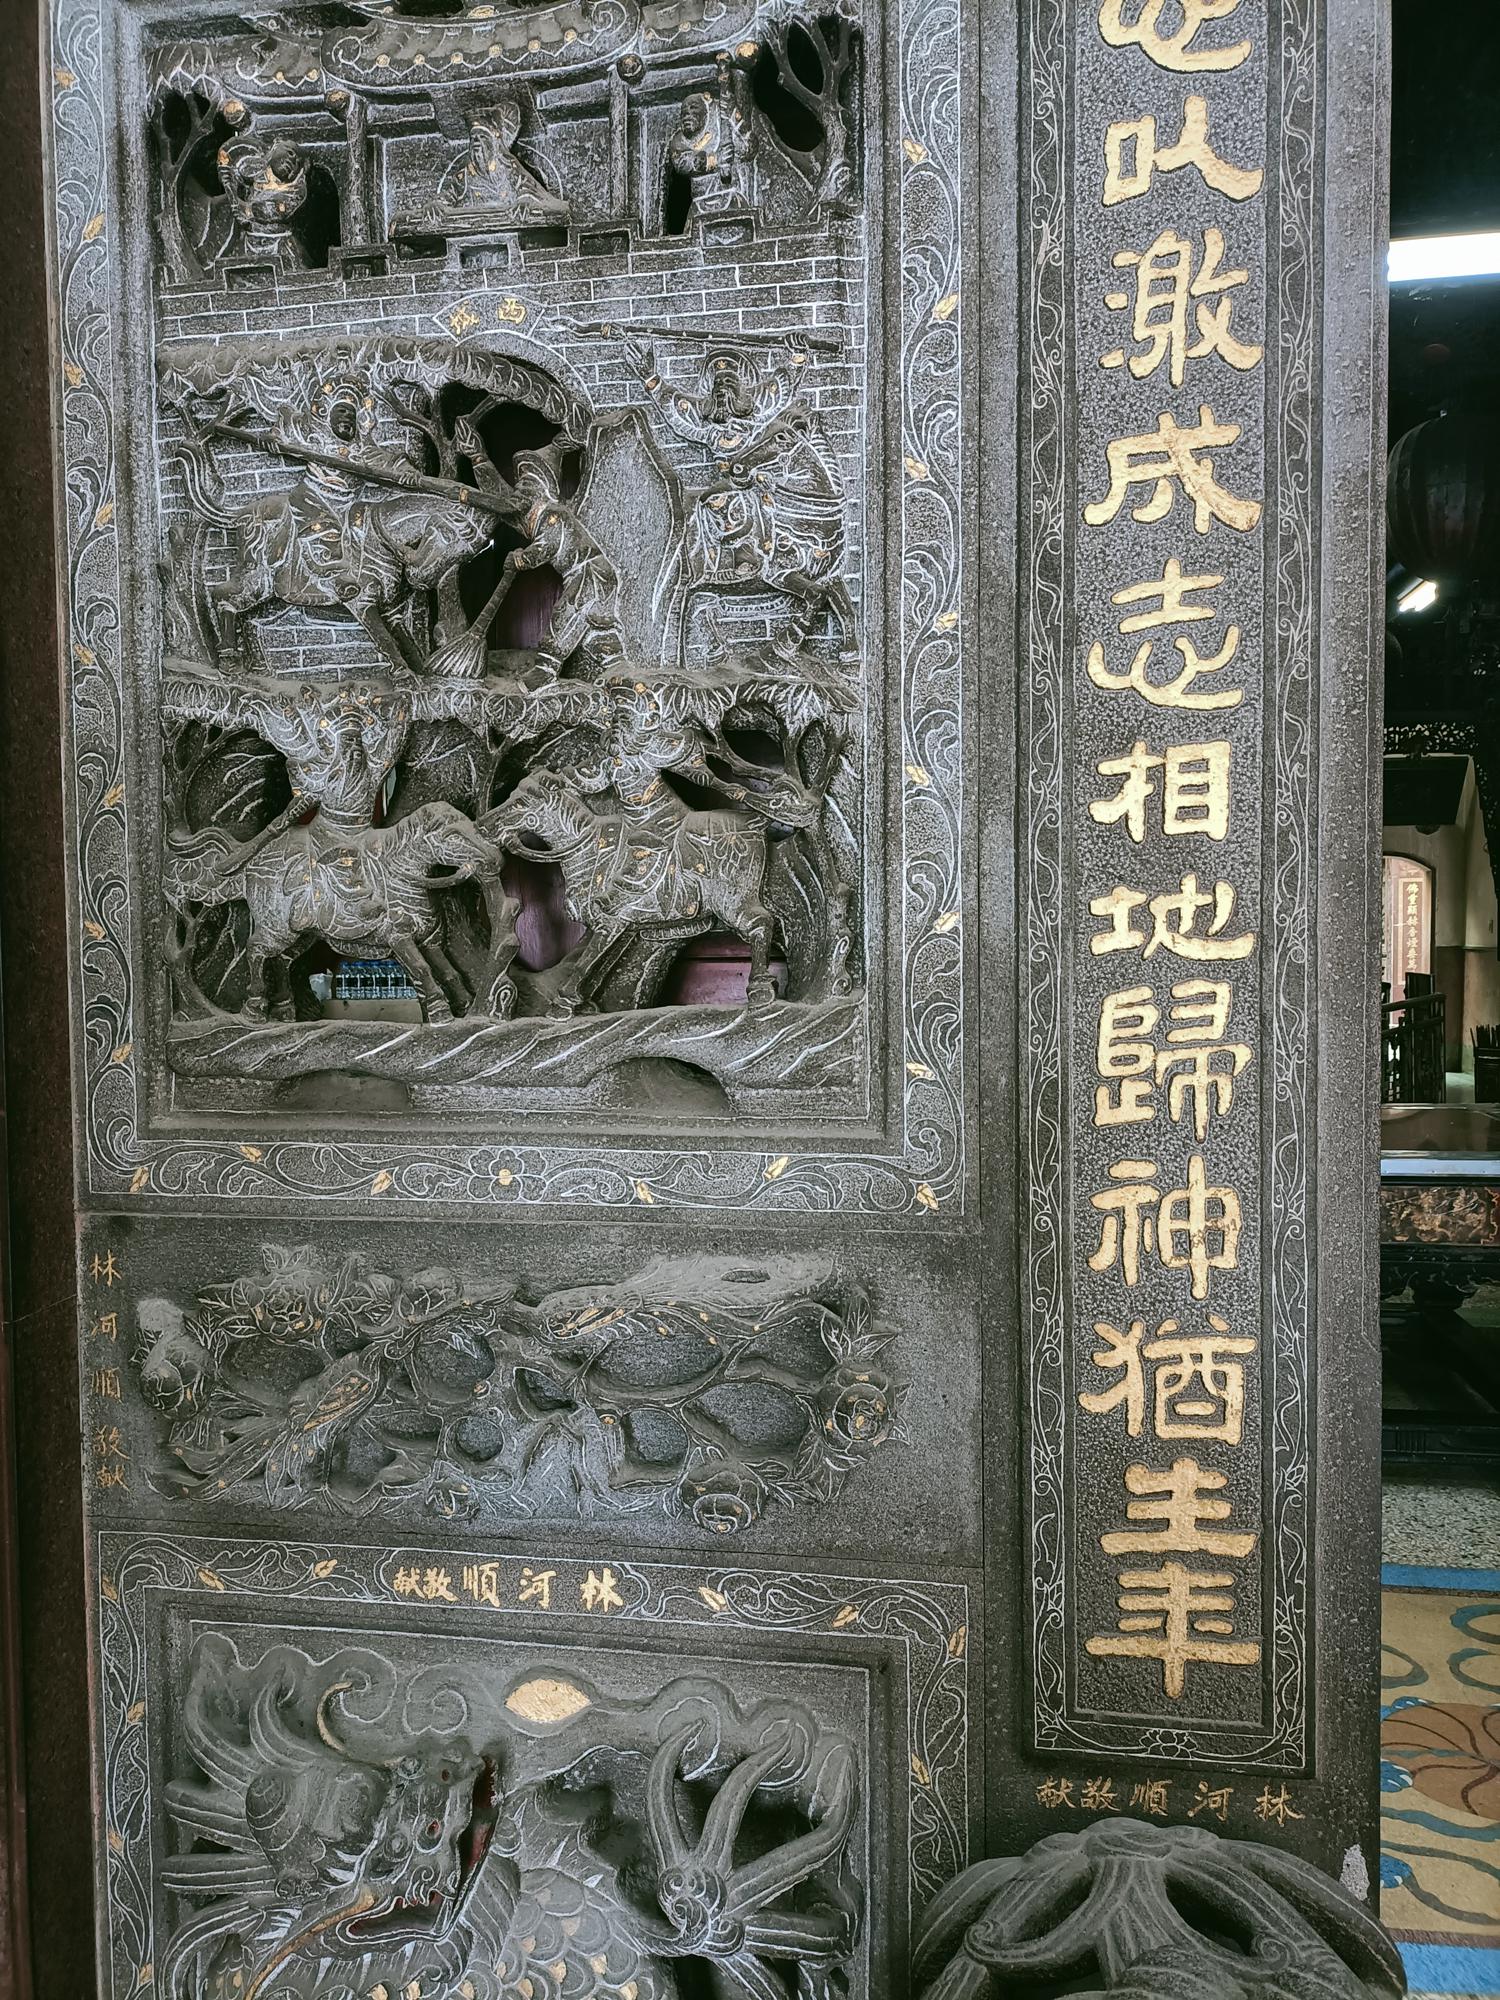 西城
以成志相地歸神猶生年
林河順敬献
林河順敬献
林河順敬献